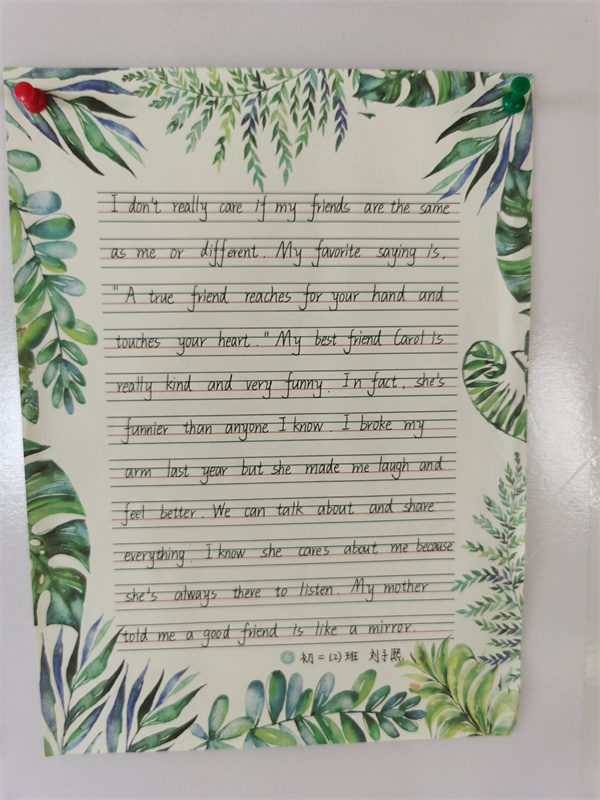 I don't really care if my friends are the same
as me or different. My favorite saying is,
"A true friend reaches for your hand and
touches your heart." My best friend Carol is
really kind and very funny. In fact, she's
funnier than anyone I know. I broke my
arm last year but she made me laugh and
feel better. We can talk about and share
everything. I know she cares about me because
she's always there to listen. My mother
told me a good friend is like a mirror.
初二(2)班 刘子熙